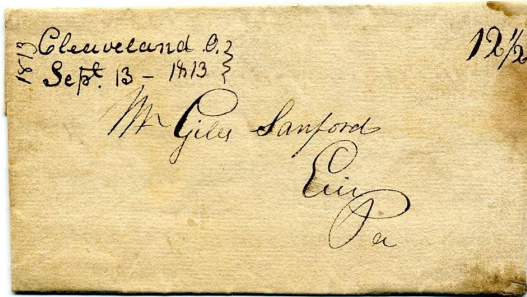 1813
Cleaveland O.
Sept. 13 - 1813
12½
Mr Giles Sanford
Erie
Pa